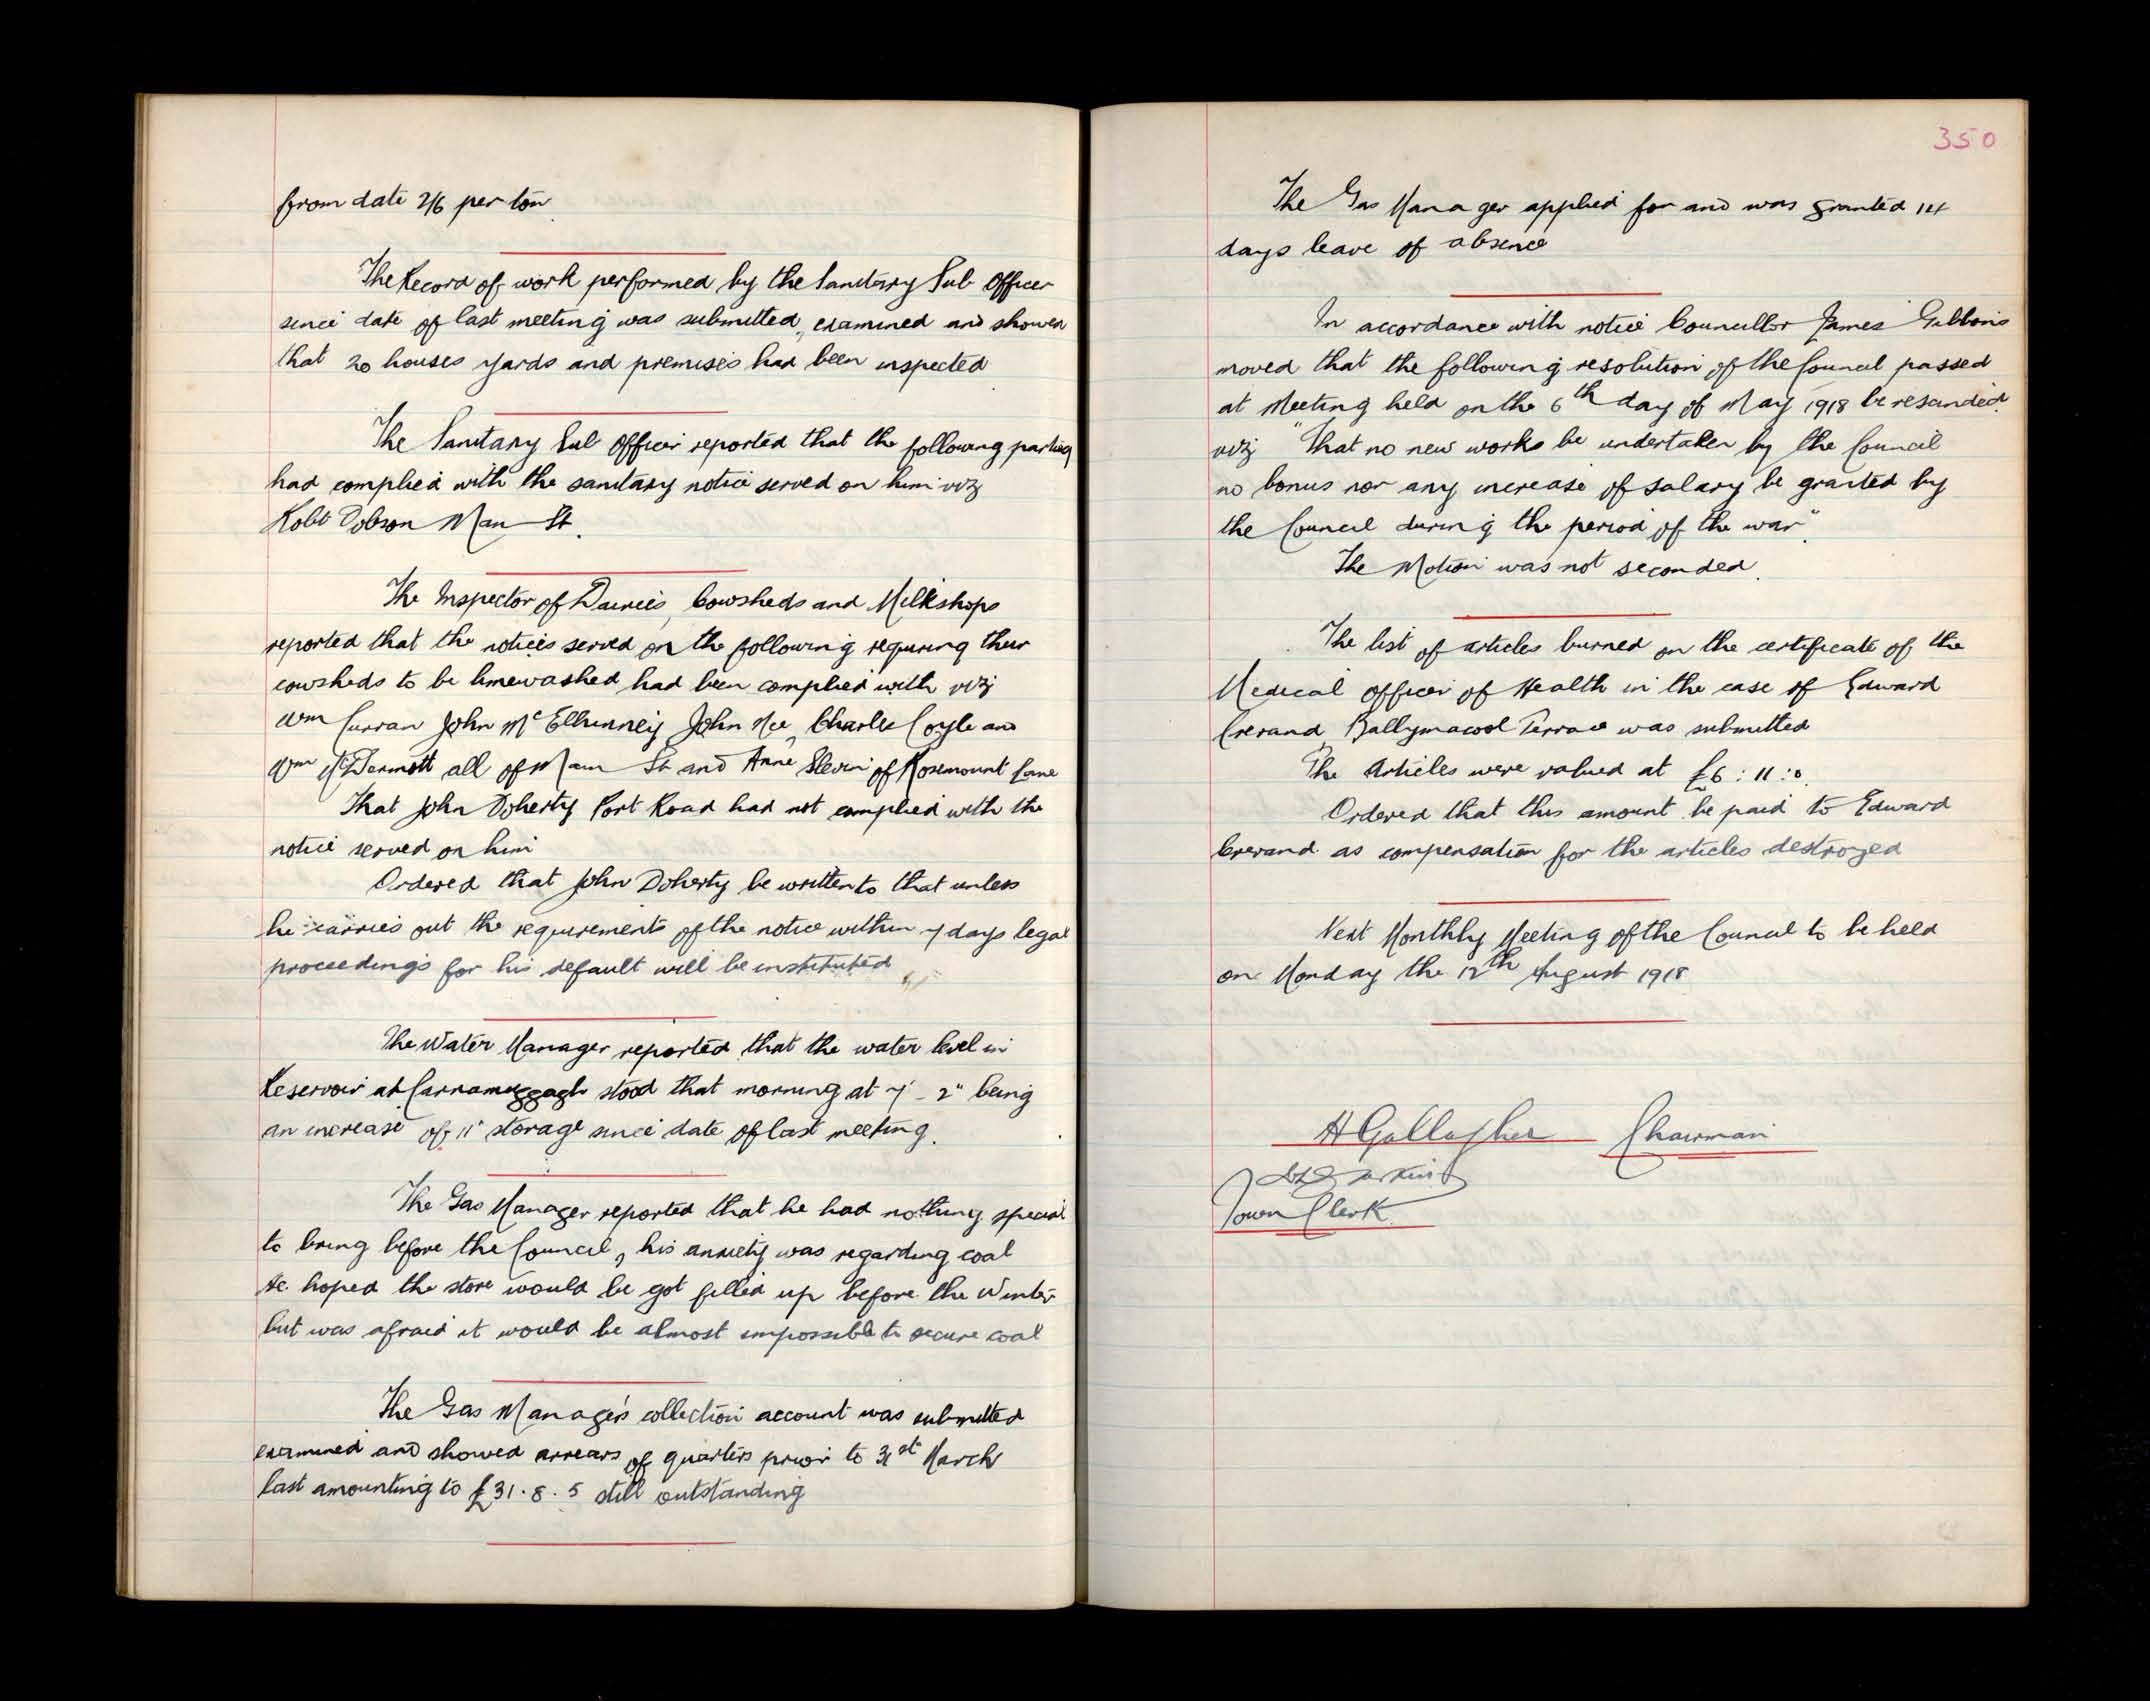 from date 2/6 per ton
The Record of work performed by the Sanitary Sub Officer
since date of last meeting was submitted, examined and showed
that 20 houses yards and premises had been inspected
The Sanitary Sub Officer reported that the following parties
had complied with the sanitary notice served on him viz
Robt Dobson Main St.
The Inspector of Dairies, Cowsheds and Milkshops
reported that the notices served on the following requiring their
cowsheds to be limewashed had been complied with viz
Wm Curran John McElhinney John Nee, Charles Coyle and
Wm McDermott all of Main St and Anne Slevin of Rosemount Lane
That John Doherty Port Road had not complied with the
notice served on him
Ordered that John Doherty be written to that unless
he carries out the requirements of the notice within 7 days legal
proceedings for his default will be instituted
The Water Manager reported that the water level in
Reservoir at Carnamuggagh stood that morning at 7' - 2" being
an increase of 11" storage since date of last meeting.
The Gas Manager reported that he had nothing special
to bring before the Council, his anxiety was regarding coal
He hoped the store would be got filled up before the Winter
but was afraid it would be almost impossible to secure coal
The Gas Manager's collection account was submitted
examined and showed arrears of quarters prior to 31st March
last amounting to £31.8.5 still outstanding
350
The Gas Manager applied for and was granted 14
days leave of absence
In accordance with notice Councillor James Gibbons
moved that the following resolution of the Council passed
at Meeting held on the 6th day of May 1918 be rescinded.
viz "That no new works be undertaken by the Council
no bonus nor any increase of salary be granted by
the Council during the period of the war".
The Motion was not seconded.
The list of articles burned on the certificate of the
Medical Officer of Health in the case of Edward
Crerand, Ballymacool Terrace was submitted
The Articles were valued at £6 : 11 : 0.
Ordered that this amount be paid to Edward
Crerand as compensation for the articles destroyed
Next Monthly Meeting of the Council to be held
on Monday the 12th August 1918
H Gallagher Chairman
Town Clerk